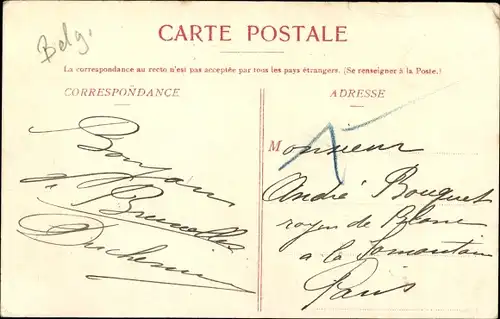 Belg.
CARTE POSTALE
La correspondance au recto n'est pas acceptée par tous les pays étrangers. (Se renseigner à la Poste.)
CORRESPONDANCE
ADRESSE
Bonjour
de Bruxelles
Duchemin
Monsieur
André Bouquet
rayon de Blanc
a la
Paris